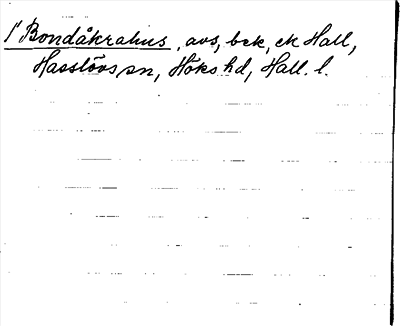 1' Bondåkrahus, avs, bek, ek Hall,
Hasslövs sn, Höks hd, Hall. l.